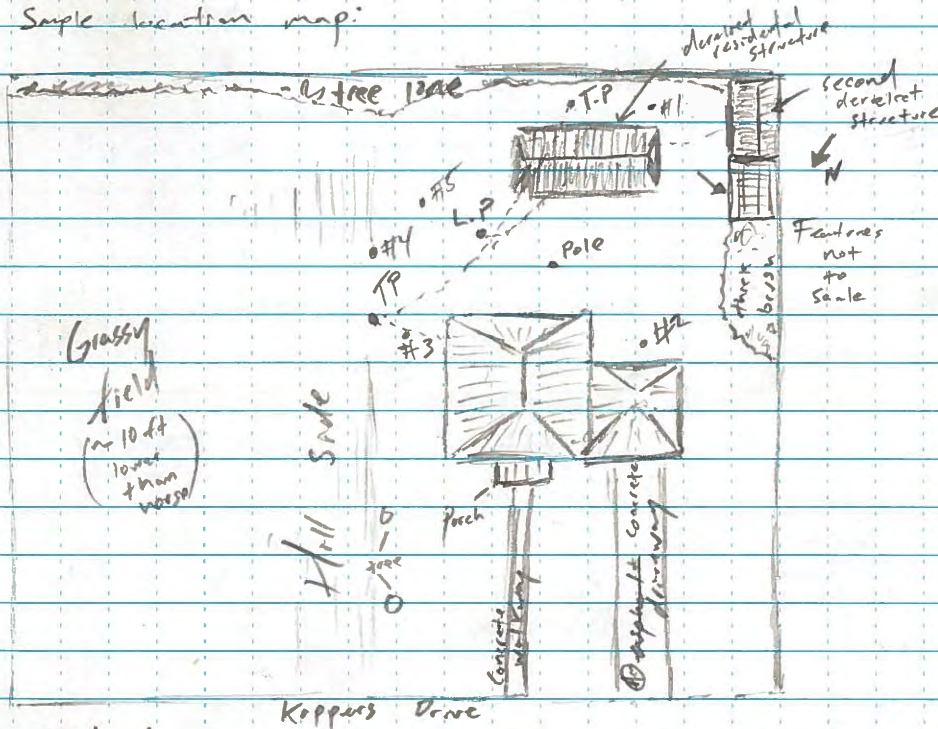 Sample location map:
derelict
residential
structure
~ tree line
T.P
#1
second
derelict
structure
N
#5
L.P
#4
Pole
TP
Features
not
to
Scale
thick
brush
#3
#2
Grassy
field
(~ 10 ft
lower
than
house)
Hill Side
Porch
tree
Concrete
walkway
asphalt concrete
driveway
Koppers Drive